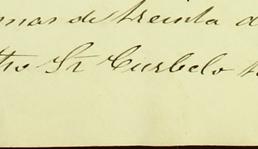 mas de treinta a
tro Sr Curbelo